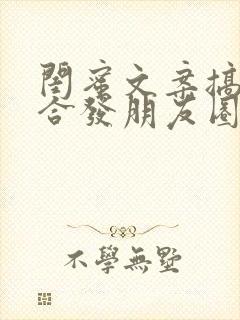 閨蜜文案搞
合發朋友圈
不學無墅